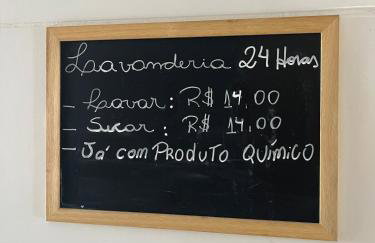 Lavanderia 24 Horas
- Lavar: R$ 14,00
- Secar: R$ 14,00
- Já com Produto Químico